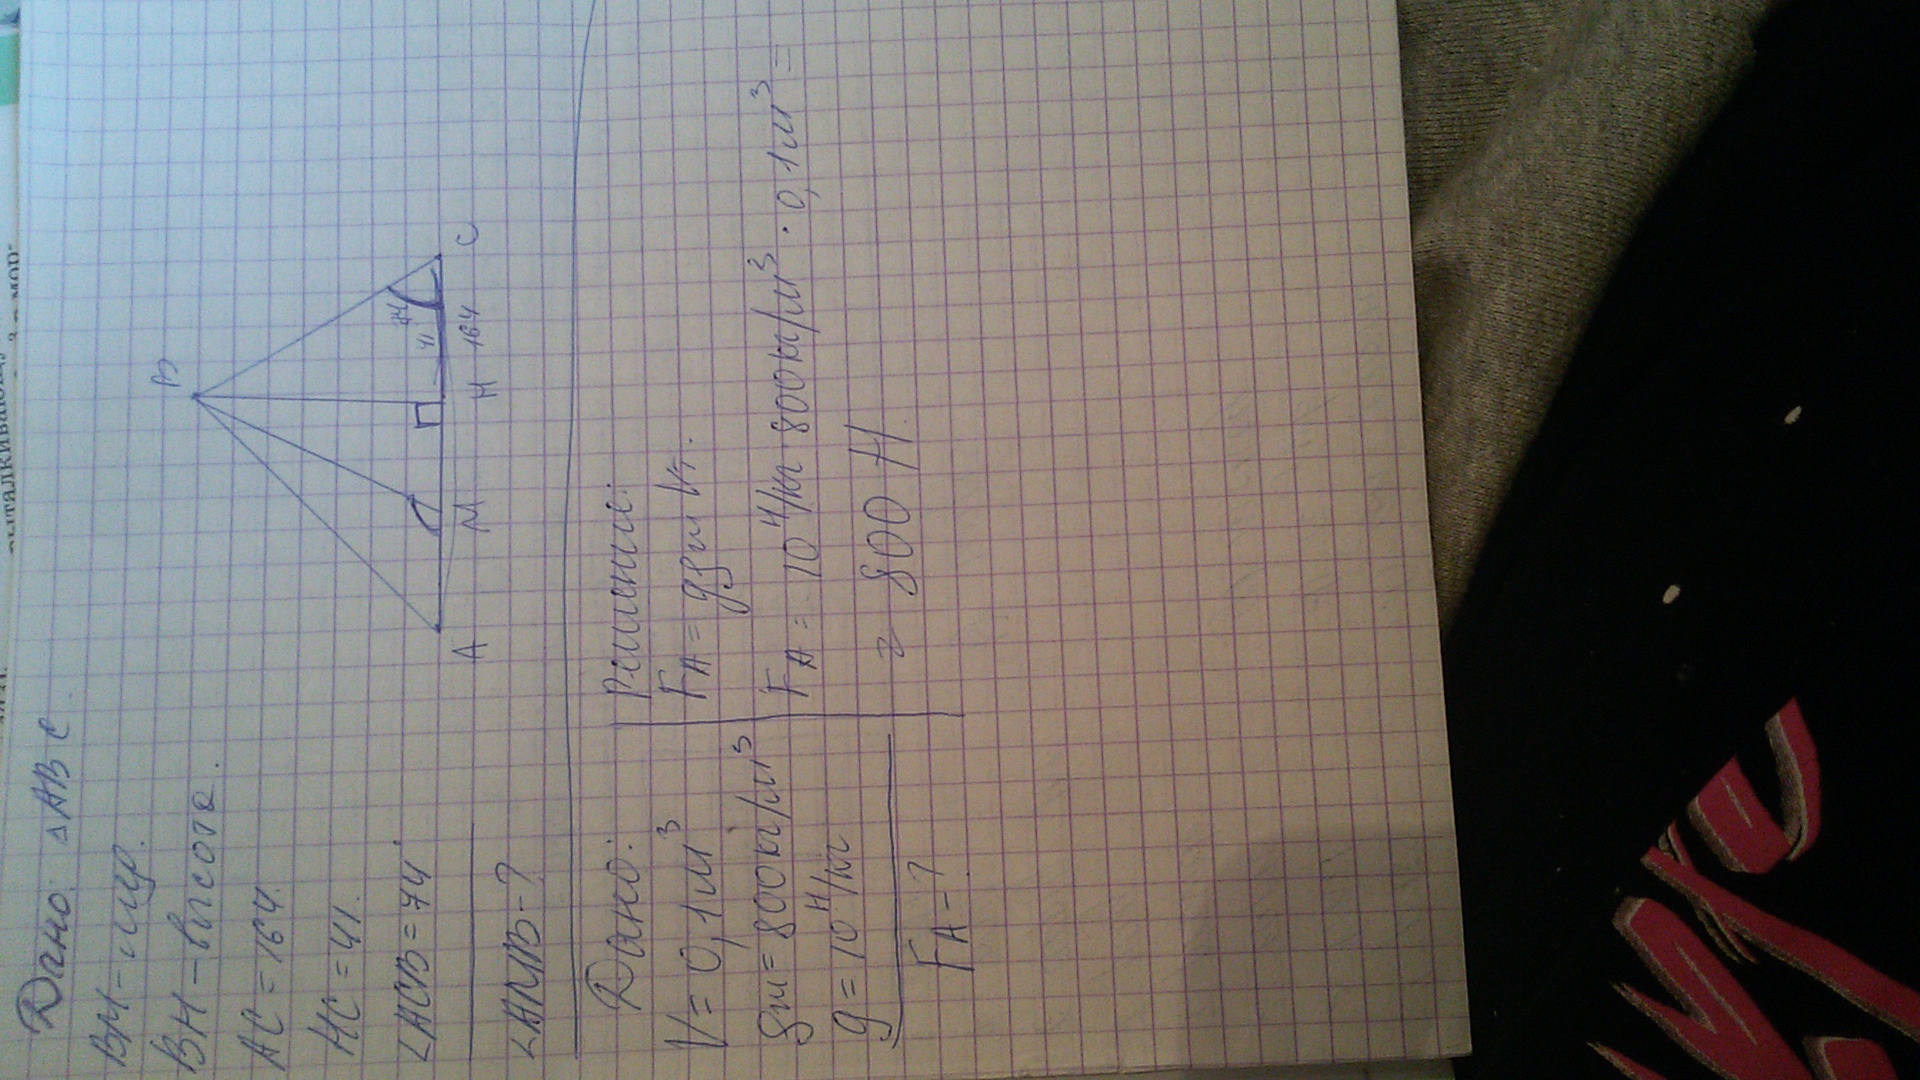 Дано: △ABC
BM - мед.
BH - высота.
AC = 164.
HC = 41.
∠ACB = 74°
∠AMB - ?
B
74
41
A
M
H
164
C
Дано:
V = 0,1 м³
ρж = 800 кг/м³
g = 10 Н/кг
FA - ?
Решение:
FA = gρж Vт.
FA = 10 Н/кг 800 кг/м³ · 0,1 м³ =
= 800 Н